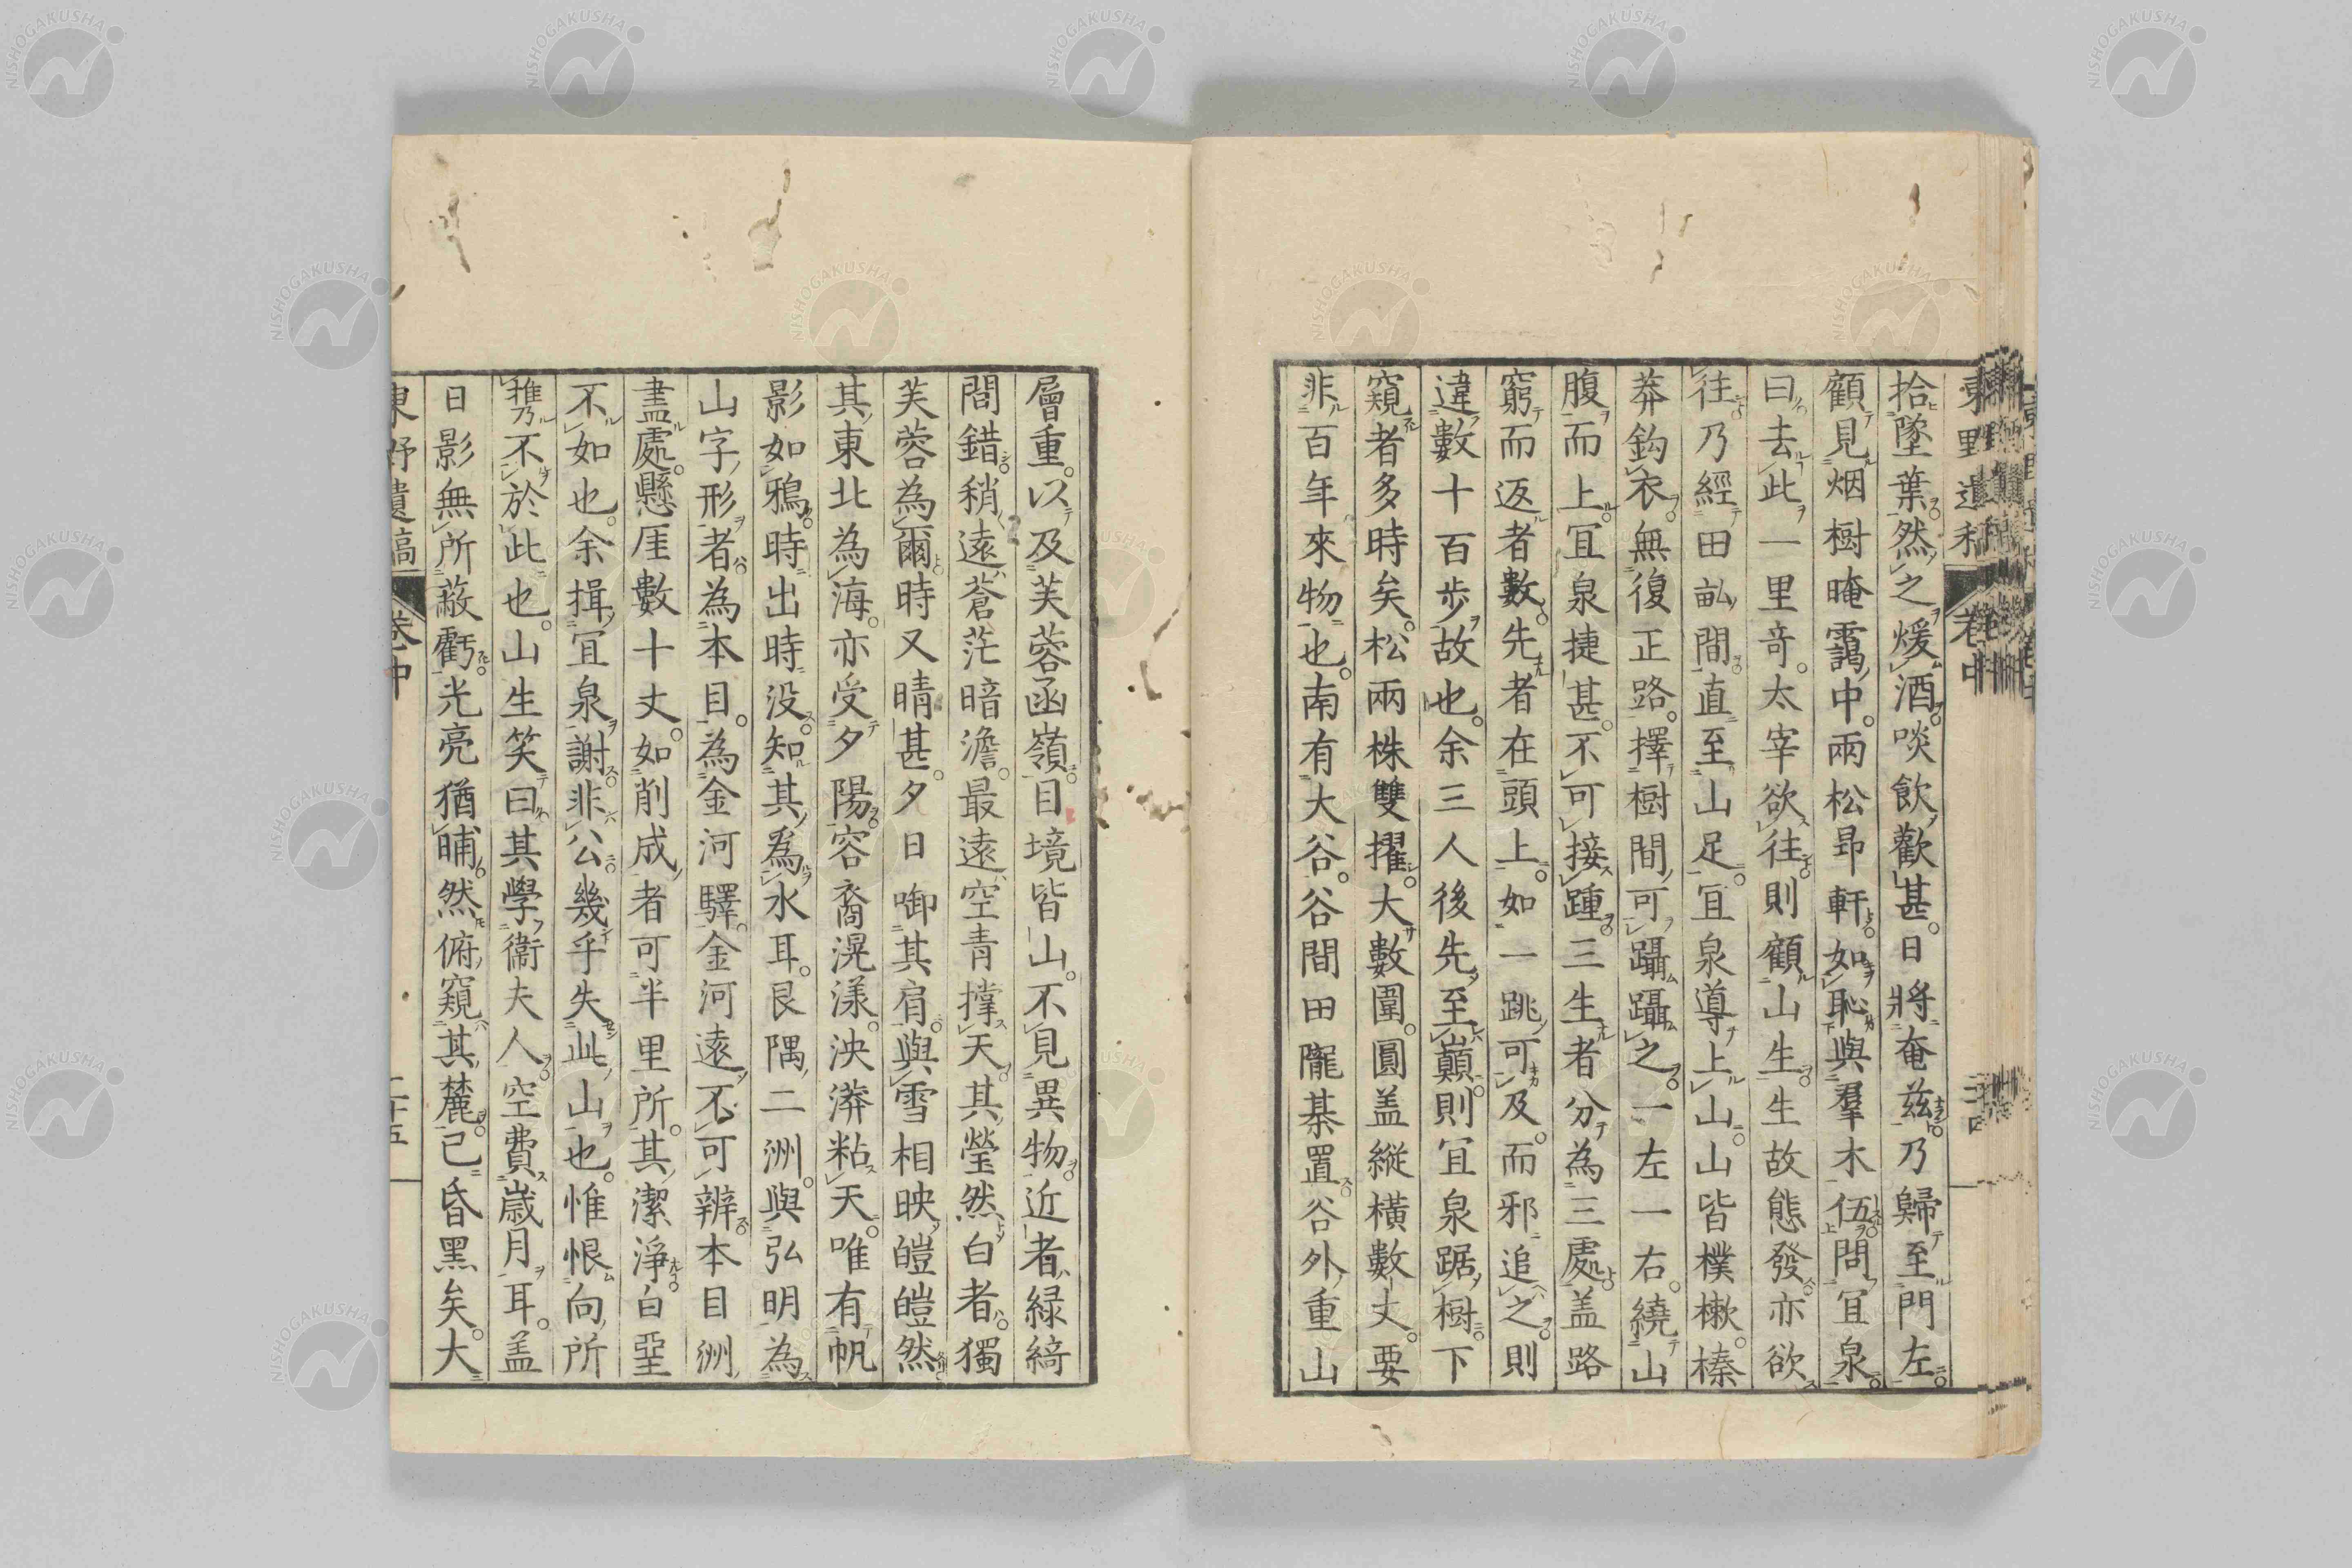 拾墜葉然之煖酒啖飲歡甚日將奄茲乃歸至門左
顧見烟樹晻靄中兩松昻軒如恥與羣木伍問冝泉
曰去此一里竒太宰欲往則顧山生生故態發亦欲
往乃經田畆間直至山足冝泉導上山山皆樸樕榛
莽鈎衣無復正路擇樹間可躡躡之一左一右繞山
腹而上冝泉捷甚不可接踵三生者分為三處盖路
窮而返者數先者在頭上如一跳可及而邪追之則
違數十百步故也余三人後先至巔則冝泉踞樹下
窺者多時矣松兩株雙擢大數圍圓盖縱橫數丈要
非百年來物也南有大谷谷間田隴棊置谷外重山
層重以及芙蓉函嶺目境皆山不見異物近者緑綺
間錯稍遠蒼茫暗澹最遠空青撑天其瑩然白者獨
芙蓉為爾時又晴甚夕日啣其肩與雪相映皚皚然
其東北為海亦受夕陽容裔滉漾泱漭粘天唯有帆
影如鴉時出時没知其為水耳艮隅二洲與弘明為
山字形者為本目為金河驛金河遠不可辨本目洲
盡處懸厓數十丈如削成者可半里所其潔淨白堊
不如也余揖冝泉謝非公幾乎失此山也惟恨向所
推乃不於此也山生笑曰其學衞夫人空費歳月耳盖
日影無所蔽虧光亮猶晡然俯窺其麓已昏黑矣大
東野遺稿 卷中 二十五
NISHOGAKUSHA